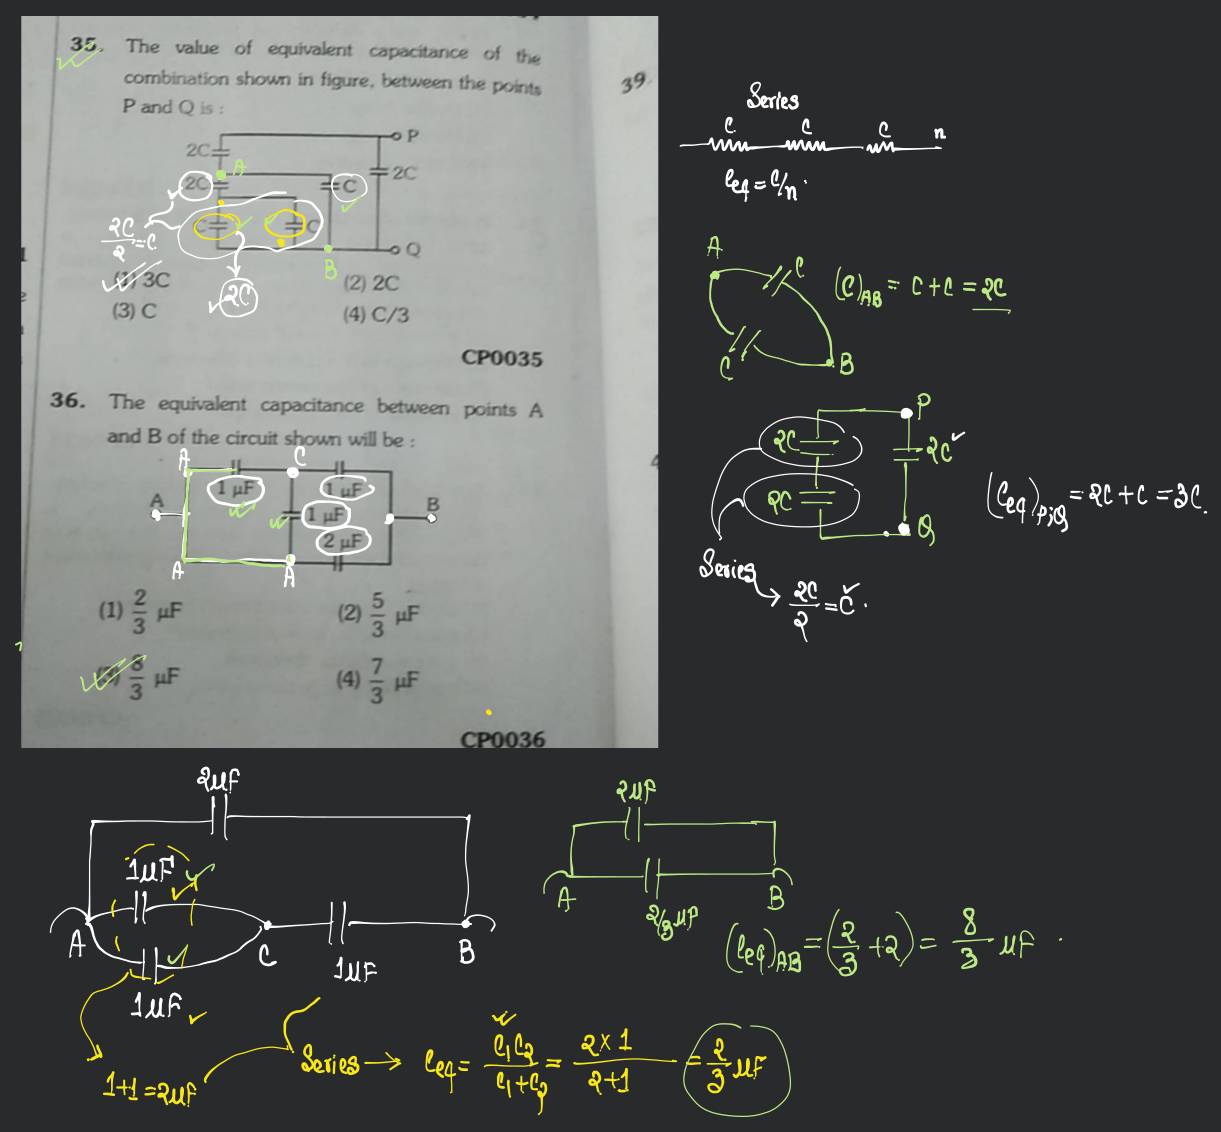 35. The value of equivalent capacitance of the
combination shown in figure, between the points
P and Q is :
P
2C
A
2C
2C
C
C
C
Q
B
2C/2 = C
2C
(1) 3C
(2) 2C
(3) C
(4) C/3
CP0035
36. The equivalent capacitance between points A
and B of the circuit shown will be :
A
C
1 μF
1 μF
A
B
1 μF
2 μF
A
A
(1) 2/3 μF
(2) 5/3 μF
(3) 8/3 μF
(4) 7/3 μF
CP0036
39
Series
C C C n
Ceq = C/n
A
C
(C)AB = C + C = 2C
C
B
P
2C
2C
2C
Q
(Ceq)P,Q = 2C + C = 3C.
Series
2C/2 = C.
2μF
1μF
A
C
B
1μF
1μF
1+1 = 2μF
Series → Ceq = C1C2/C1+C2 = 2×1/2+1 = 2/3 μF
2μF
A
B
2/3 μF
(Ceq)AB = (2/3 + 2) = 8/3 μF